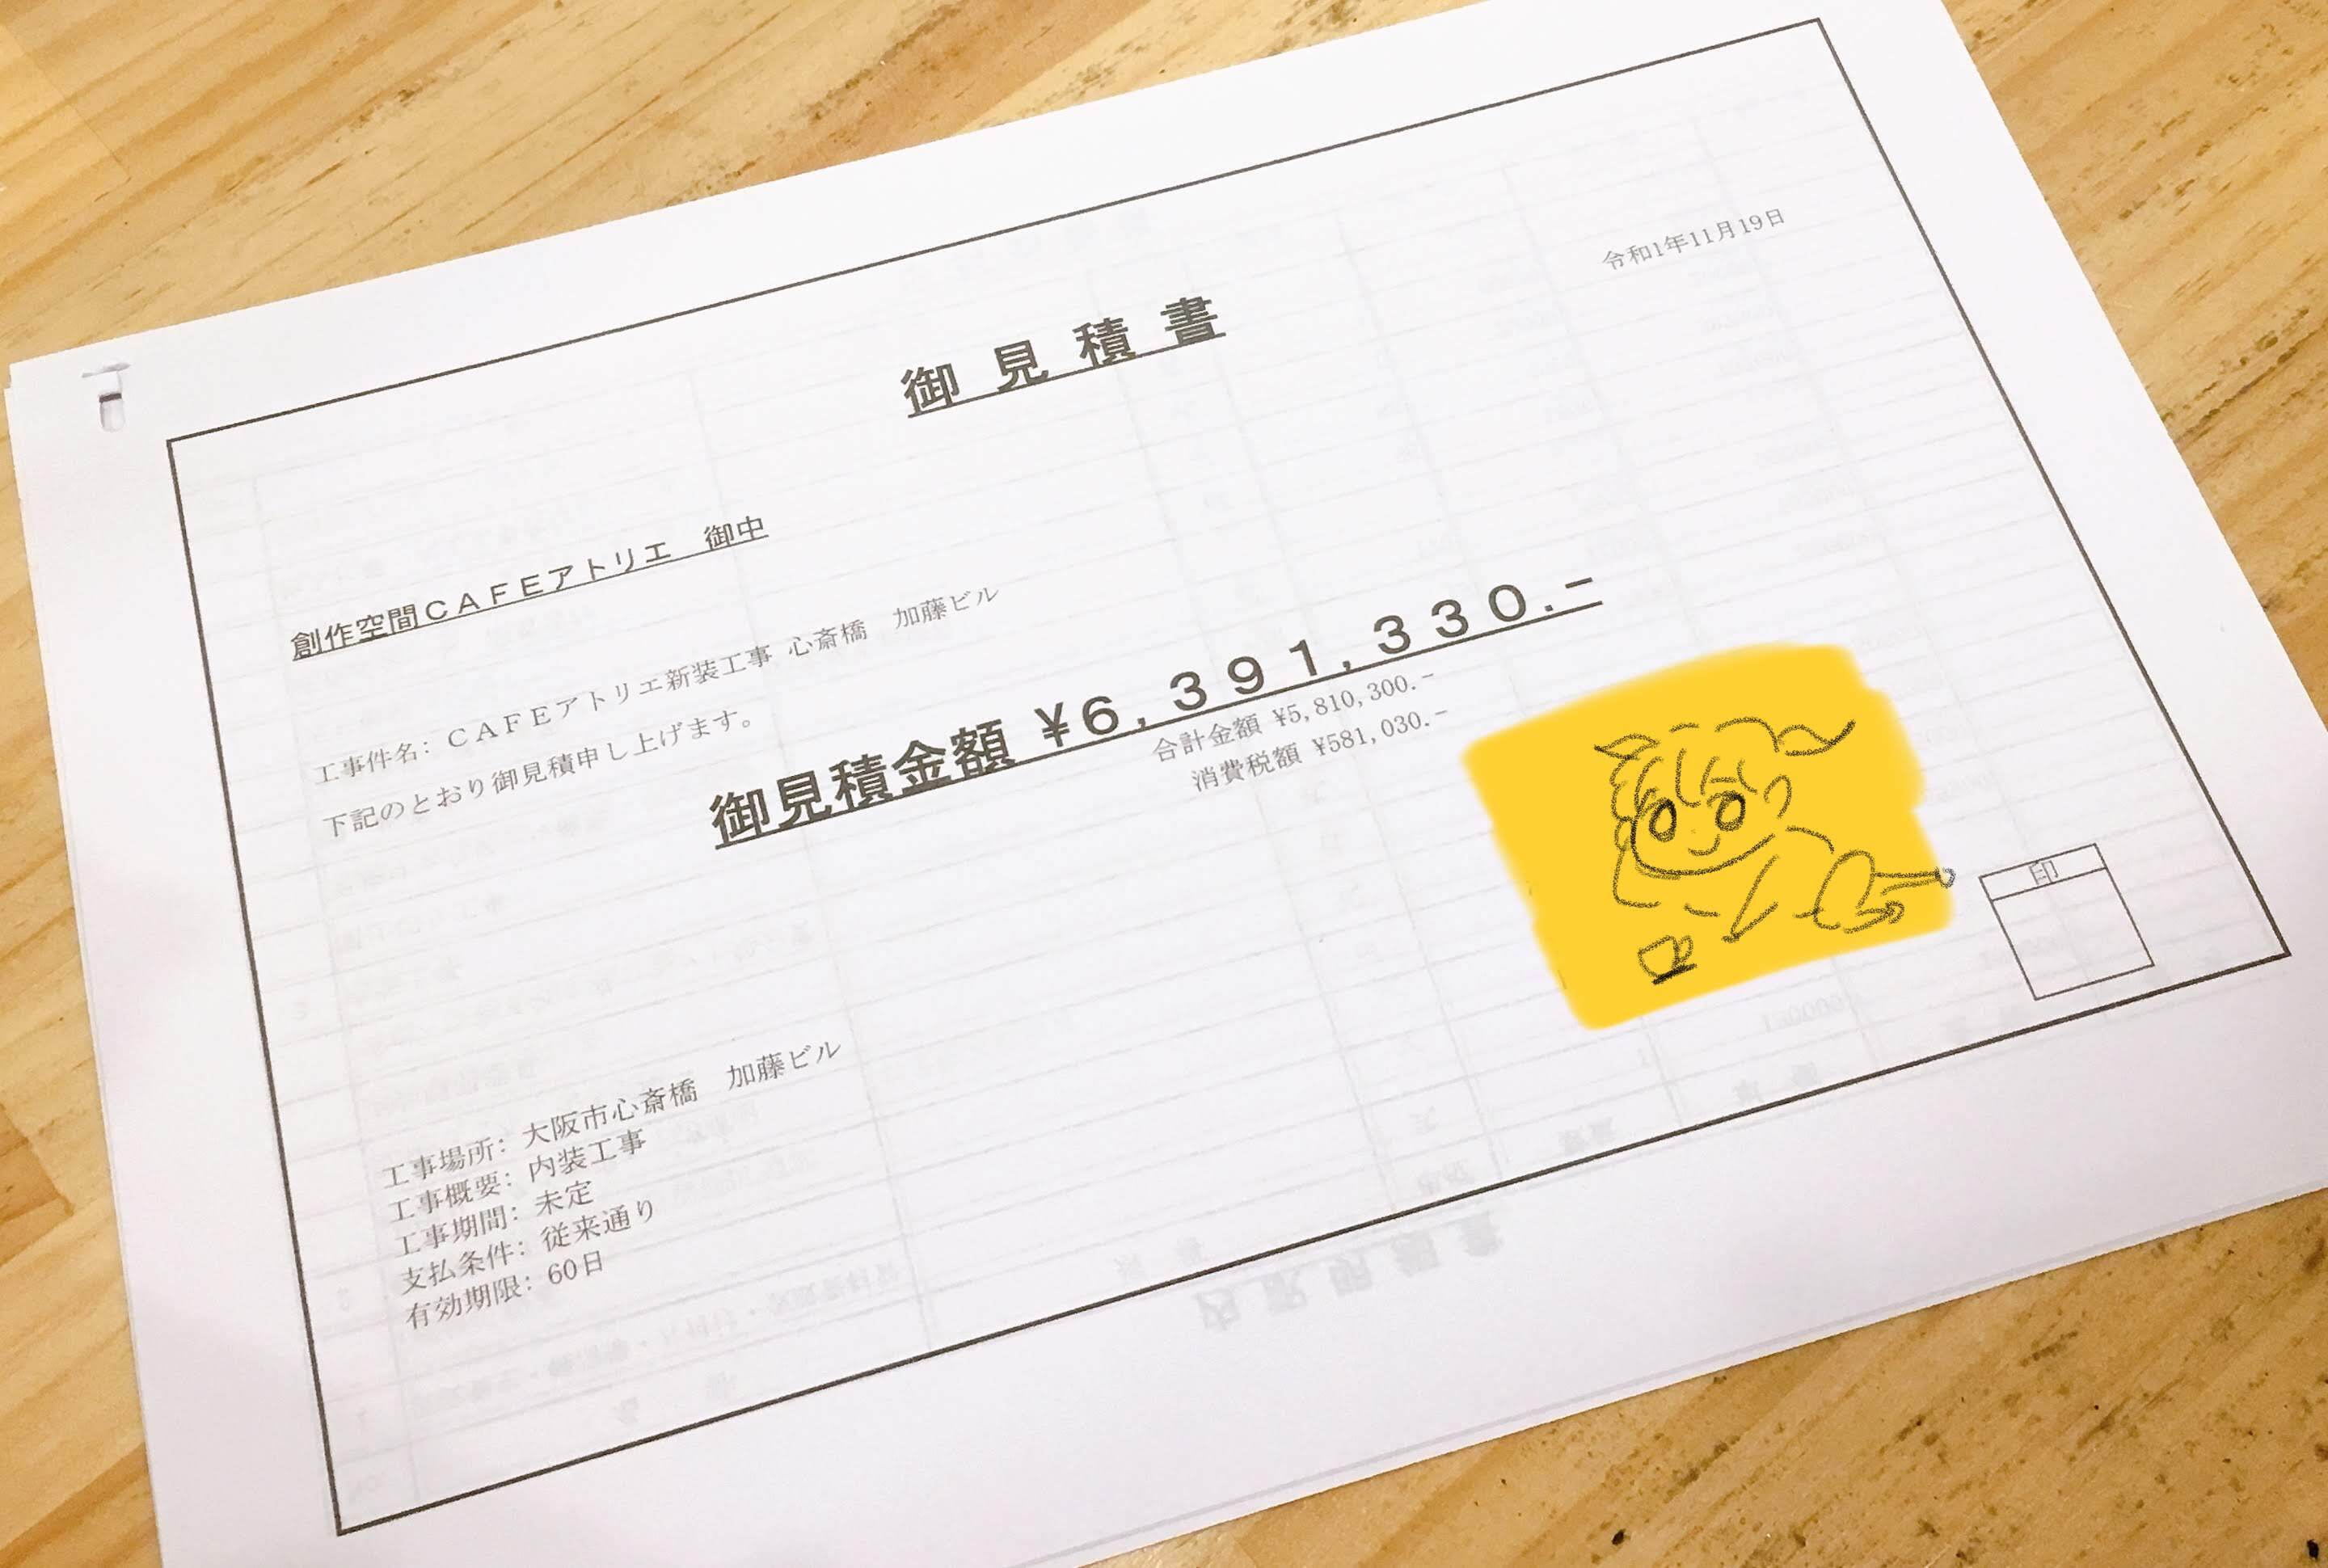 令和1年11月19日
御見積書
創作空間ＣＡＦＥアトリエ　御中
工事件名：ＣＡＦＥアトリエ新装工事 心斎橋　加藤ビル
下記のとおり御見積申し上げます。
御見積金額 ¥６，３９１，３３０.－
合計金額 ¥5,810,300.－
消費税額 ¥581,030.－
印
工事場所：大阪市心斎橋　加藤ビル
工事概要：内装工事
工事期間：未定
支払条件：従来通り
有効期限：60日